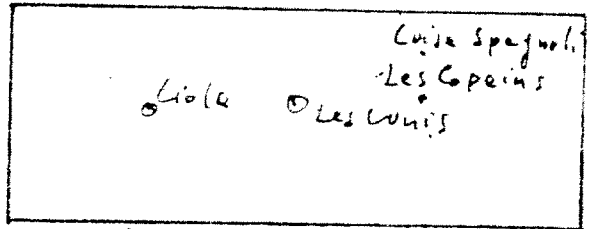 Luisa Spagnoli
Les Copains
Liola
Les Copains